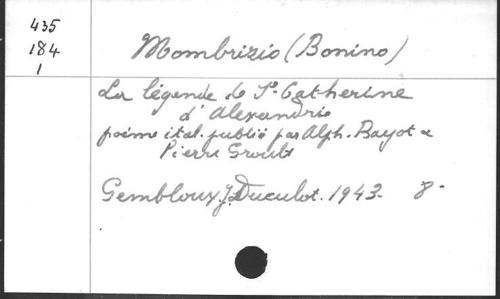 435
184
1
Mombrizio (Bonino)
La légende de Ste Catherine
d'Alexandrie
poème ital. publié par Alph. Bayot &
Pierre Groult
Gembloux. J. Duculot. 1943. 8°